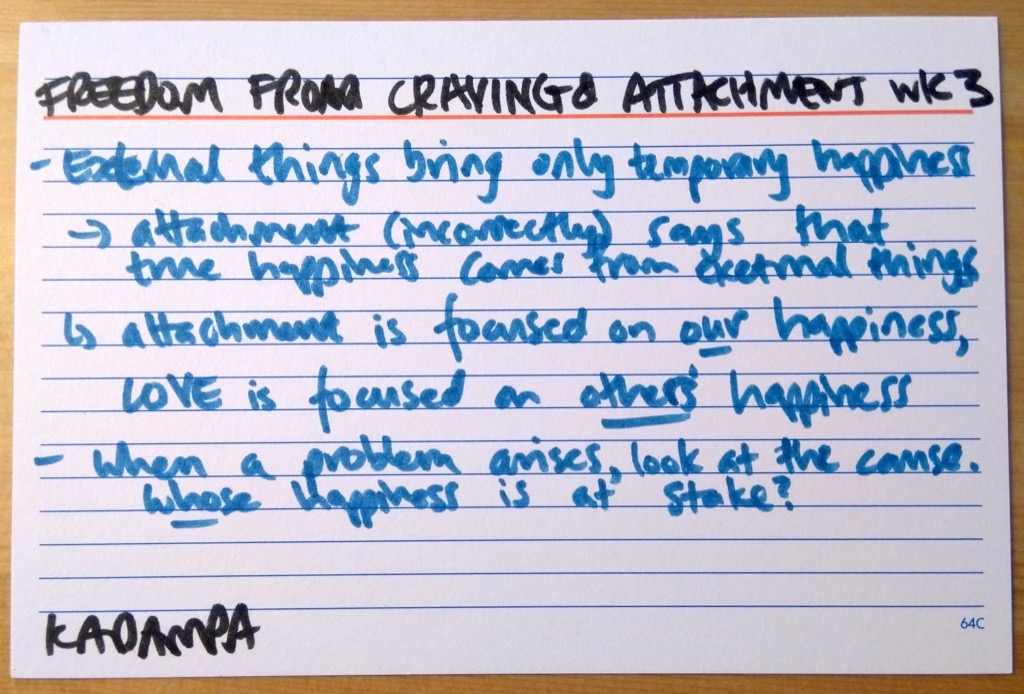 FREEDOM FROM CRAVING & ATTACHMENT WK 3
- External things bring only temporary happiness
→ attachment (incorrectly) says that
true happiness comes from external things
↳ attachment is focused on our happiness,
LOVE is focused on others' happiness
- When a problem arises, look at the cause.
Whose happiness is at stake?
KADAMPA
64C